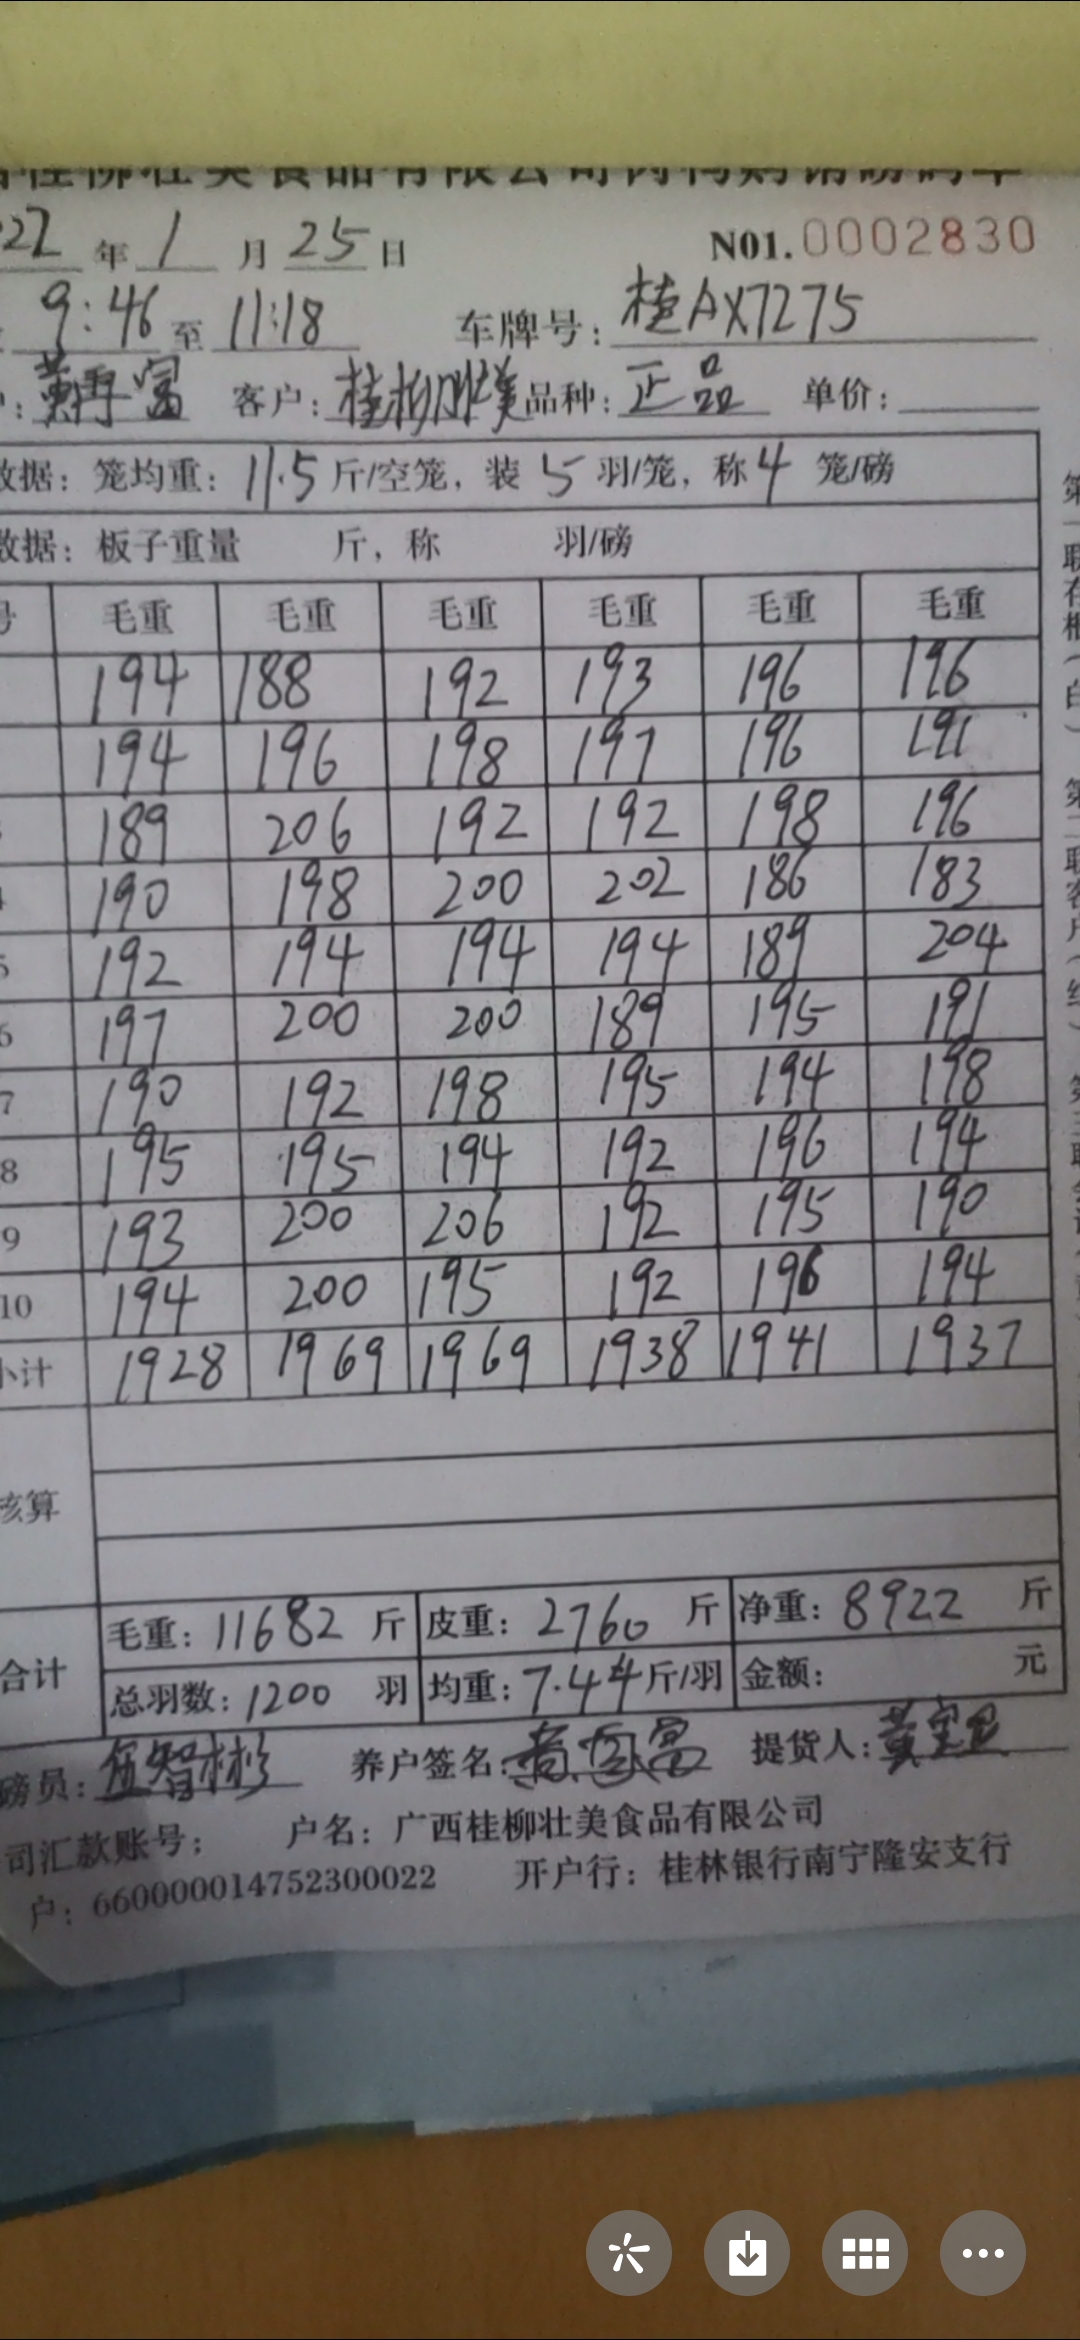 桂柳壮美食品有限公司肉鸭购销磅码单
022 年 1 月 25 日 N01.0002830
9:46 至 11:18 车牌号: 桂AX7275
户: 黄再富 客户: 桂柳壮美 品种: 正品 单价:
数据: 笼均重: 11.5 斤/空笼, 装 5 羽/笼, 称 4 笼/磅
数据: 板子重量 斤, 称 羽/磅
号 毛重 毛重 毛重 毛重 毛重 毛重
194 188 192 193 196 196
194 196 198 197 196 191
189 206 192 192 198 196
4 190 198 200 202 186 183
5 192 194 194 194 189 204
6 197 200 200 189 195 191
7 190 192 198 195 194 198
8 195 195 194 192 196 194
9 193 200 206 192 195 190
10 194 200 195 192 196 194
小计 1928 1969 1969 1938 1941 1937
核算
合计 毛重: 11682 斤 皮重: 2760 斤 净重: 8922 斤
总羽数: 1200 羽 均重: 7.44 斤/羽 金额: 元
磅员: 智彬 养户签名: 富 提货人: 黄
司汇款账号; 户名: 广西桂柳壮美食品有限公司
户: 660000014752300022 开户行: 桂林银行南宁隆安支行
第一联存根(白) 第二联客户(红) 第三联